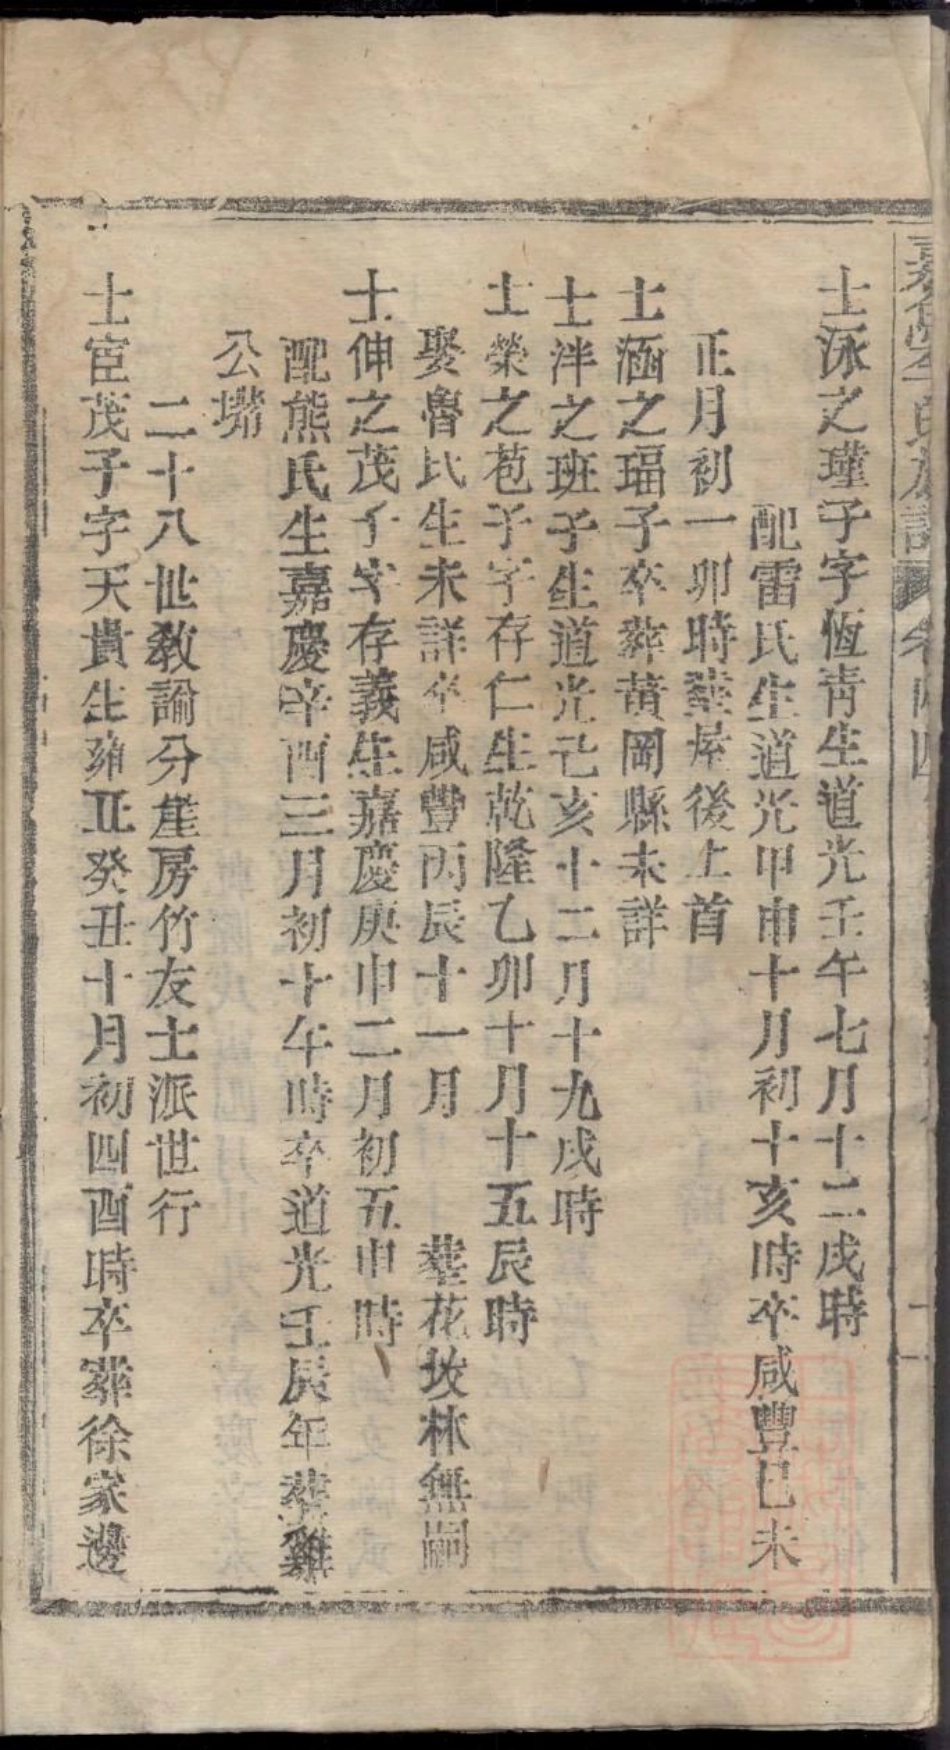 氏族譜
士泳之瑾子字恆靑生道光壬午七月十二戌時
配雷氏生道光甲申十月初十亥時卒咸豐己未
正月初一卯時塟屋後上首
士涵之瑙子卒葬黃岡縣未詳
士泮之班子生道光己亥十二月十九戌時
士榮之苞子字存仁生乾隆乙卯十月十五辰時
娶魯氏生未詳卒咸豐丙辰十一月 塟花坟林無嗣
士伸之茂子字存義生嘉慶庚申二月初五申時
配熊氏生嘉慶辛酉三月初十午時卒道光壬辰年塟雞
公壋
二十八世敎諭分崖房竹友士派世行
士宦茂子字天貴生雍正癸丑十月初四酉時卒葬徐家邊